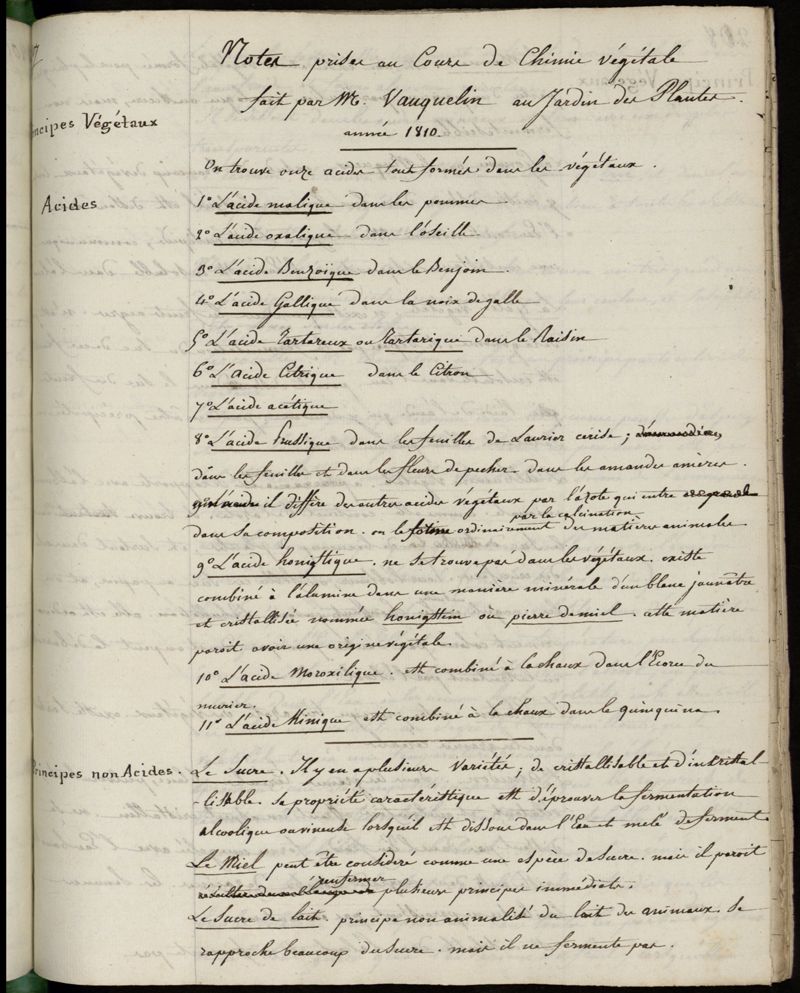 Notes prises au Cours de Chimie végétale
fait par M. Vauquelin au Jardin des Plantes.
année 1810.
Principes Végétaux
On trouve onze acides tout formés dans les végétaux.
Acides
1º L'acide malique dans les pommes
2º L'acide oxalique dans l'oseille
3º L'acide Benzoïque dans le Benjoin.
4º L'acide Gallique dans la noix de galle
5º L'acide Tartareux ou Tartarique dans le Raisin
6º L'acide Citrique dans le Citron
7º L'acide acétique
8º L'acide Prussique dans les feuilles de Laurier cerise;
dans les feuilles et dans les fleurs de pecher. dans les amandes amères.
il diffère des autres acides végétaux par l'azote qui entre
par la calcination
dans sa composition. on le forme ordinairement des matieres animales
9º L'acide honigstique. ne se trouve pas dans les végétaux. existe
combiné à l'alumine dans une manière minérale d'un blanc jaunâtre
et cristallisée nommée honigstein ou pierre de miel. cette matière
paroit avoir une origine végétale.
10º L'acide Moroxilique. est combiné à la chaux dans l'Ecorce du
murier.
11º L'acide Kinique est combiné à la chaux dans le quinquina.
Principes non Acides.
Le Sucre. Il y en a plusieurs variétés; de cristallisable et d'incristal-
-lisable. sa propriété caractéristique est d'éprouver la fermentation
alcoolique ou vineuse lorsqu'il est dissous dans l'Eau et melé de ferment.
Le Miel peut être consideré comme une espèce de sucre. mais il paroit
renfermer
plusieurs principes immédiats.
Le Sucre de lait. principe non animalisé du lait des animaux. se
rapproche beaucoup du sucre. mais il ne fermente pas.